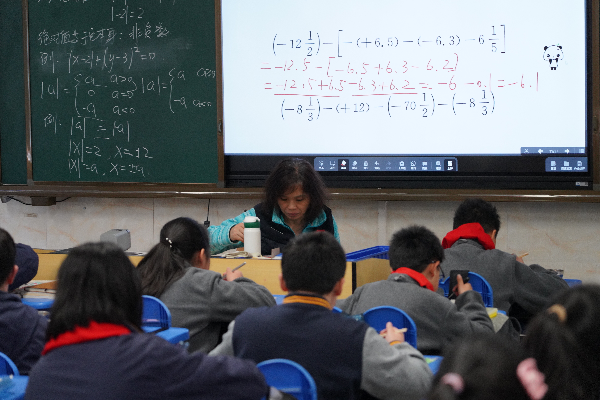 |-2|=2
例: |x-2|+(y-3)²=0
|a|={a a>0
0 a=0
-a a<0
|a|={a a≥0
-a a<0
例: |a|=|a|
|x|=2, x=±2
|x|=a, x=±a
(-12 1/2)-[-(+6.5)-(-6.3)-6 1/5]
=-12.5-[-6.5+6.3-6.2]
=-12.5+6.5-6.3+6.2=-6-0.1=-6.1
(-8 1/3)-(+12)-(-70 1/2)-(-8 1/3)